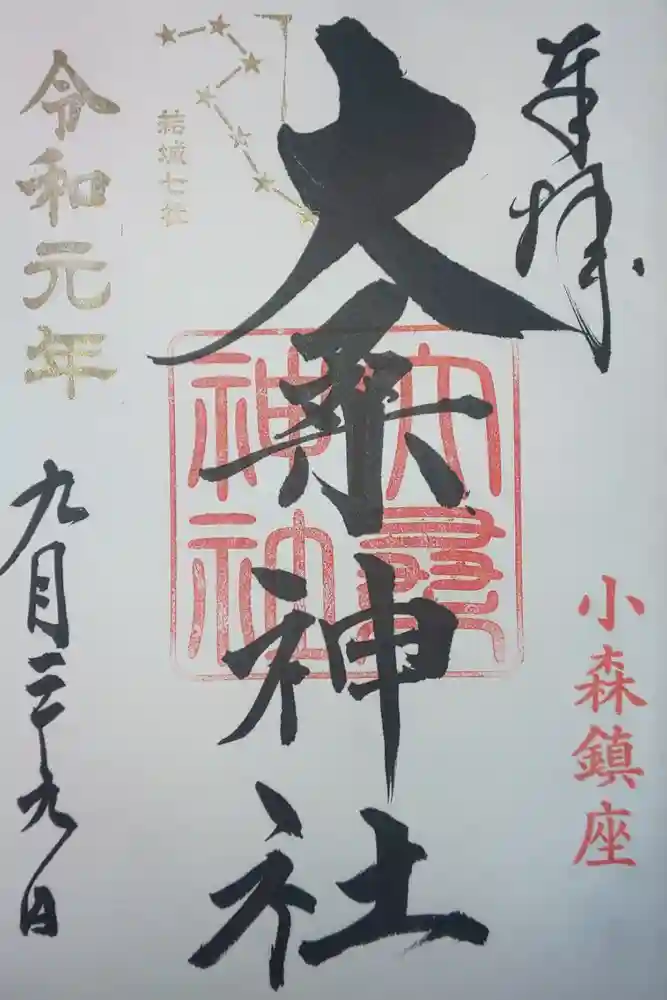 奉拝
小森鎮座
大桑神社
大桑
神社
結城七社
令和元年
九月二十九日